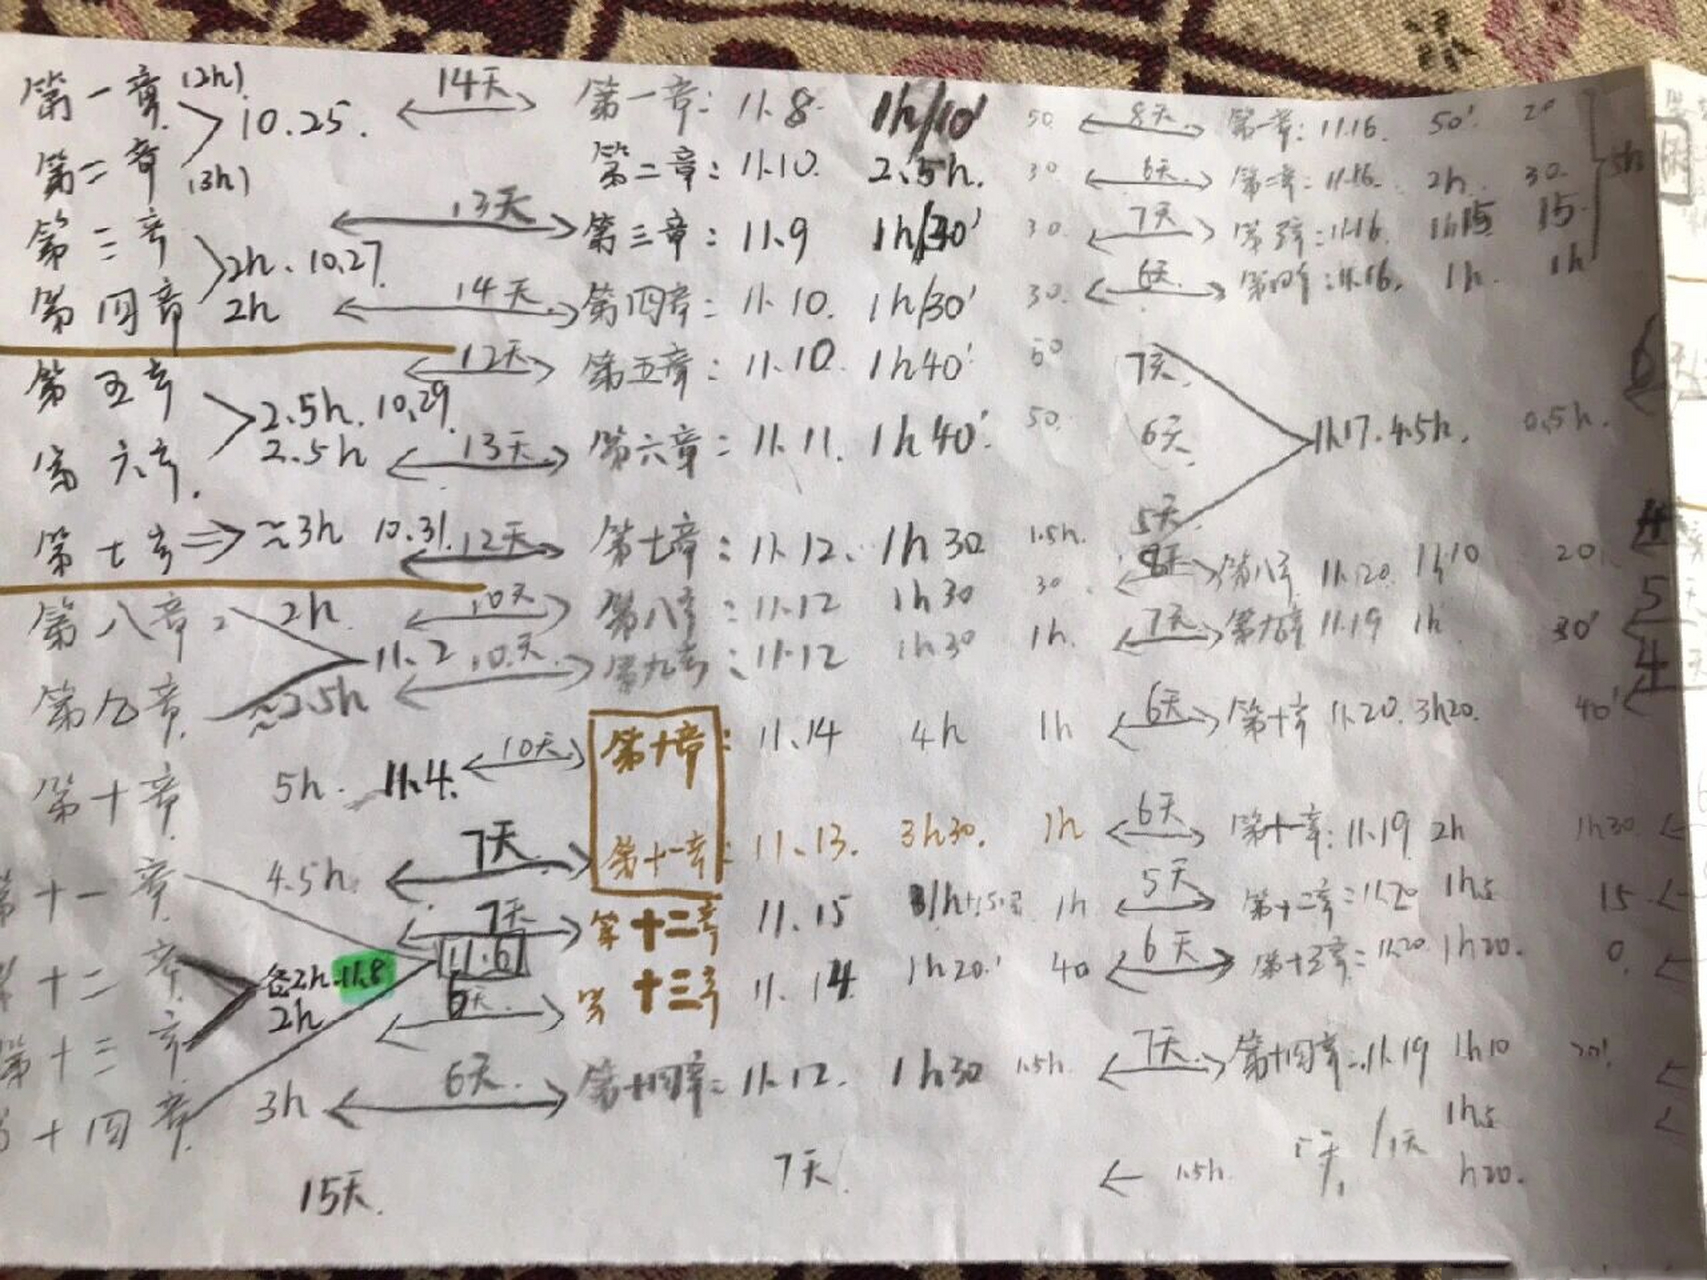 第一章 (2h) 14天 第一章: 11.8 1h/10' 50 8天 第一章: 11.16. 50' 20
10.25.
第二章 (3h) 第二章: 11.10. 2.5h. 30 6天 第二章: 11.16. 2h. 30. 5h
第三章 13天 第三章: 11.9 1h/30' 30. 7天 11.16. 1h15 15
2h. 10.27
第四章 2h 14天 第四章: 11.10. 1h/30' 30. 6天 第四章: 11.16. 1h. 1h
第五章 12天 第五章: 11.10. 1h40' 7天
2.5h. 10.29
第六章. 2.5h 13天 第六章: 11.11. 1h40'. 50. 6天 11.17. 4.5h. 0.5h.
5天
第七章 ⇒ ≈3h 10.31. 12天 第七章: 11.12. 1h30 1.5h.
第八章. 2h. 10天 第八章: 11.12 1h30 30 8天 第八章 11.20. 1h10 20
11.2
第九章. ≈2.5h 10天. 第九章: 11.12 1h30 1h. 7天 第九章 11.19 1h 30'
第十章. 5h. 11.4. 10天 第十章: 11.14 4h 1h 6天 第十章 11.20. 3h20. 40'
第十一章 4.5h. 7天 第十一章: 11.13. 3h30. 1h 6天 第十一章: 11.19 2h 1h30.
7天 第十二章 11.15 1h 5天 第十二章: 11.20 1h5 15
第十二章 各2h. 11.8 11.6
第十三章 2h 6天. 第十三章 11.14 1h20' 40 6天 第十三章: 11.20 1h20. 0.
第十四章 3h 6天. 第十四章: 11.12. 1h30 1.5h 7天 第十四章: 11.19 1h10 20'
1h5
15天. 7天. ← 1.5h. 1天 h20.